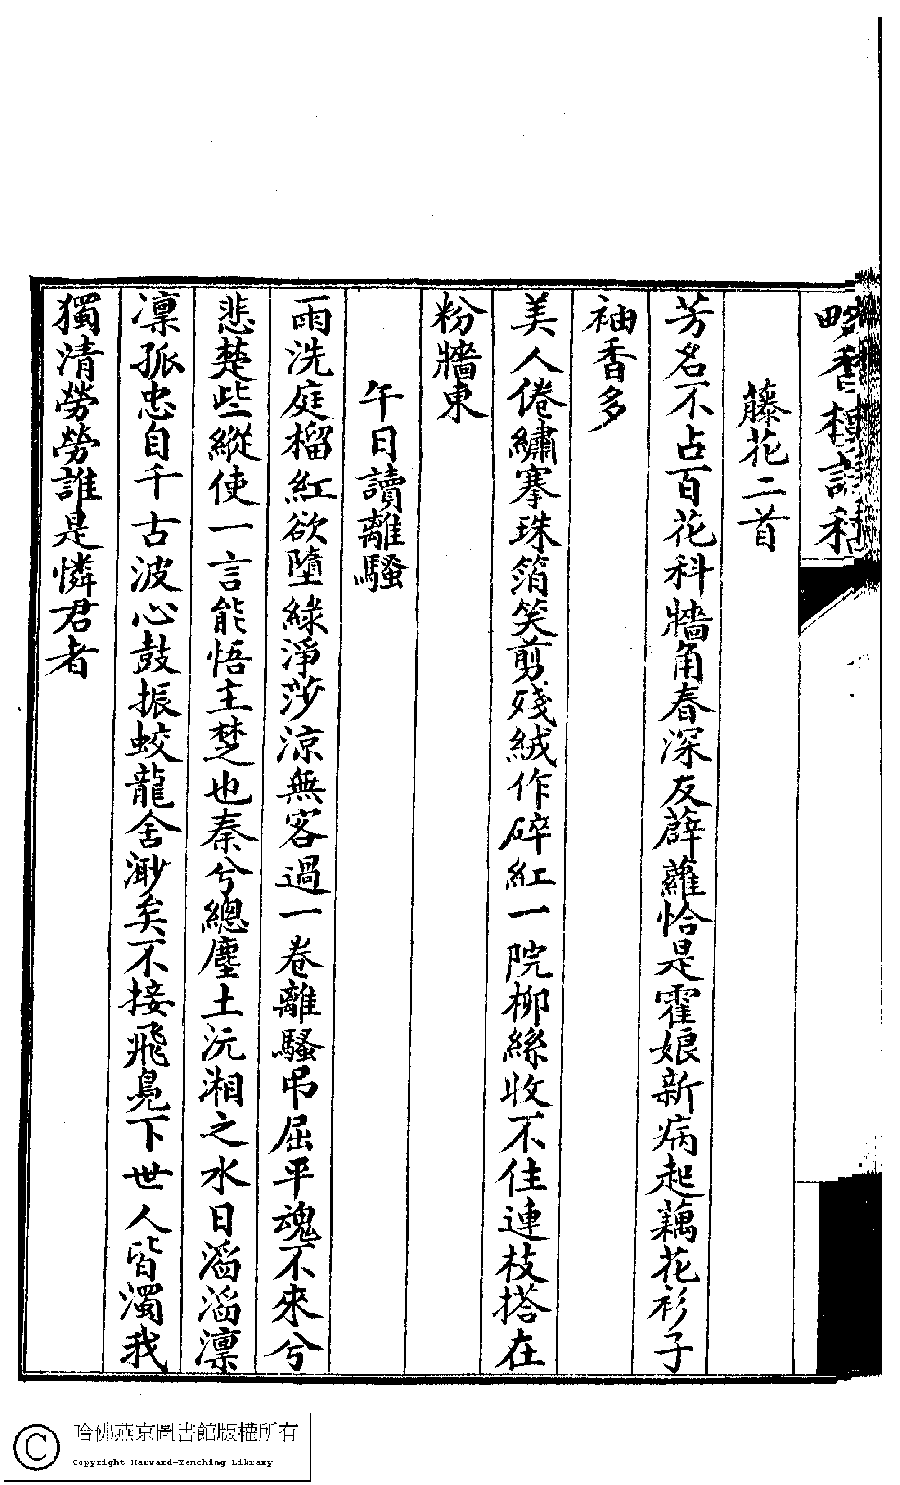 藤花二首
芳名不占百花科牆角春深友薜蘿恰是霍娘新病起藕花衫子
袖香多
美人倦繡搴珠箔笑剪殘絨作碎紅一院柳絲收不住連枝搭在
粉牆東
午日讀離騷
雨洗庭榴紅欲墮綠淨莎涼無客過一卷離騷吊屈平魂不來兮
悲楚些縱使一言能悟主楚也秦兮總塵土沅湘之水日滔滔凛
凛孤忠自千古波心鼓振蛟龍舍渺矣不接飛鳧下世人皆濁我
獨清勞勞誰是憐君者
哈佛燕京圖書館版權所有
Copyright Harvard-Yenching Library